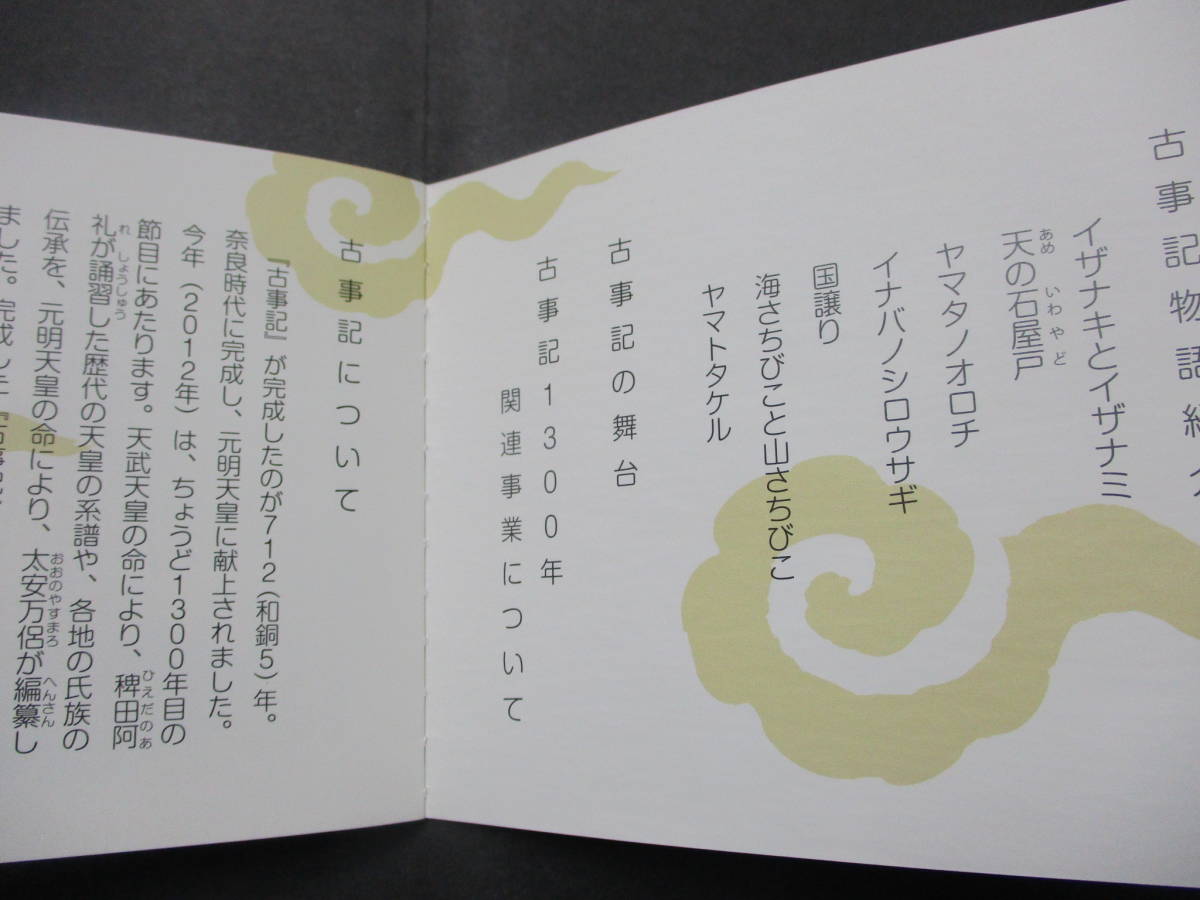 古事記物語紹介
イザナキとイザナミ
天の石屋戸
あめ いわやど
ヤマタノオロチ
イナバノシロウサギ
国譲り
海さちびこと山さちびこ
ヤマトタケル
古事記の舞台
古事記1300年
関連事業について
古事記について
『古事記』が完成したのが712(和銅5)年。
奈良時代に完成し、元明天皇に献上されました。
今年(2012年)は、ちょうど1300年目の
節目にあたります。天武天皇の命により、稗田阿
ひえだのあ
礼が誦習した歴代の天皇の系譜や、各地の氏族の
れ しょうしゅう
伝承を、元明天皇の命により、太安万侶が編纂し
おおのやすまろ へんさん
ました。完成した『古事記』